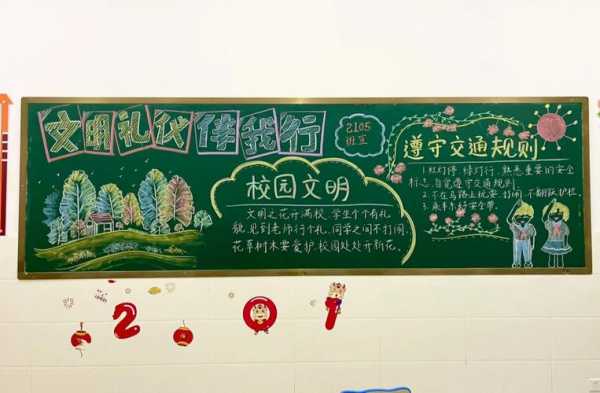 文明礼仪伴我行
2105
班宣
校园文明
文明之花开满校,学生个个有礼
貌,见到老师行个礼,同学之间不打闹,
花草树木要爱护,校园处处开新花。
遵守交通规则
1.红灯停,绿灯行,熟悉重要的安全
标志,自觉遵守交通规则。
2.不在马路上玩耍、打闹,不翻跃护栏。
3.乘车系好安全带。
2 0 1